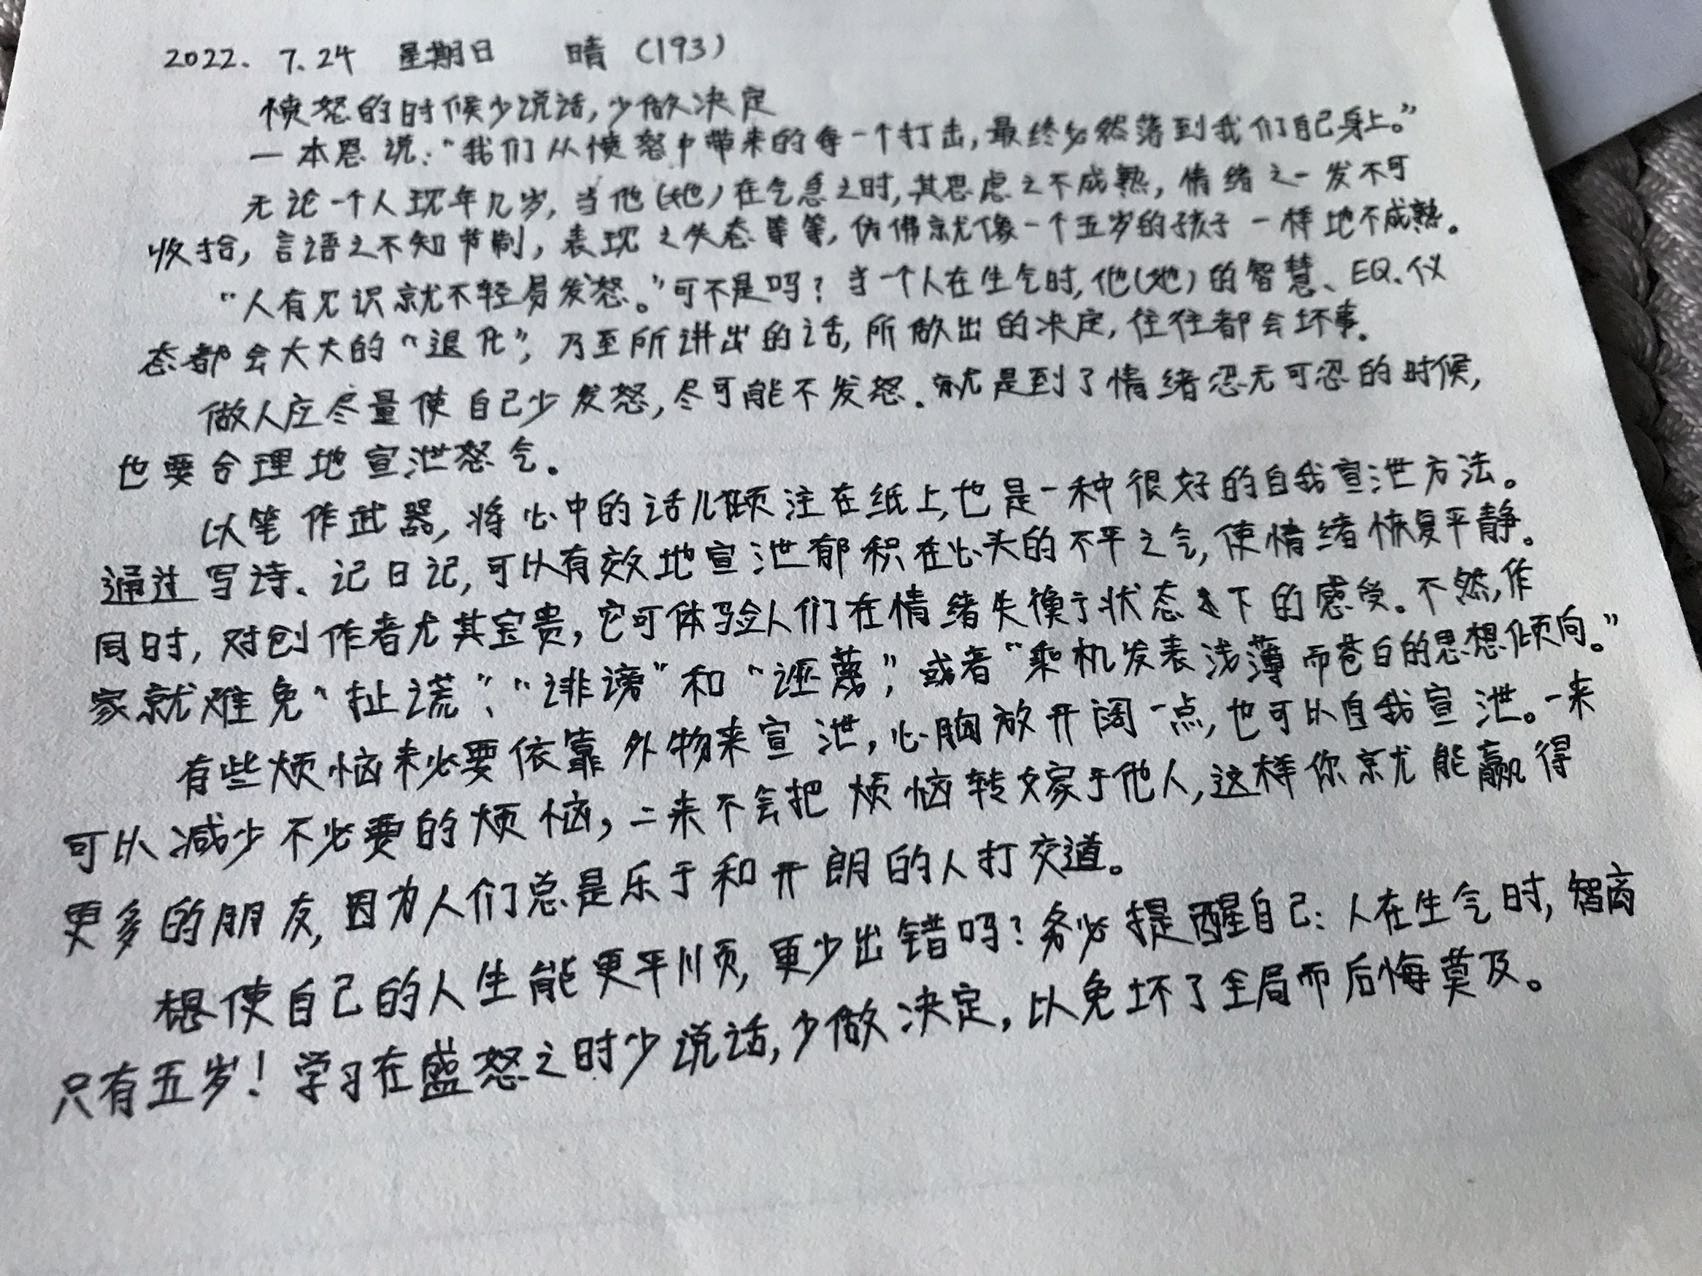 2022. 7.24 星期日 晴（193）
愤怒的时候少说话，少做决定
一本恩说：“我们从愤怒中带来的每一个打击，最终必然落到我们自己身上。”
无论一个人现年几岁，当他（她）在气急之时，其思虑之不成熟，情绪之一发不可
收拾，言语之不知节制，表现之失态等等，仿佛就像一个五岁的孩子一样地不成熟。
“人有见识就不轻易发怒。”可不是吗？当一个人在生气时，他（她）的智慧、EQ、仪
态都会大大的“退化”，乃至所讲出的话，所做出的决定，往往都会坏事。
做人应尽量使自己少发怒，尽可能不发怒．就是到了情绪忍无可忍的时候，
也要合理地宣泄怒气。
以笔作武器，将心中的话儿倾注在纸上，也是一种很好的自我宣泄方法。
通过写诗、记日记，可以有效地宣泄郁积在心头的不平之气，使情绪恢复平静。
同时，对创作者尤其宝贵，它可体验人们在情绪失衡于状态之下的感受。不然，作
家就难免“扯谎”、“诽谤”和“诬蔑”，或者“乘机发表浅薄而苍白的思想倾向。”
有些烦恼未必要依靠外物来宣泄，心胸放开阔一点，也可以自我宣泄。一来
可以减少不必要的烦恼，二来不会把烦恼转嫁于他人，这样你就能赢得
更多的朋友，因为人们总是乐于和开朗的人打交道。
想使自己的人生能更平顺，更少出错吗？务必提醒自己：人在生气时，智商
只有五岁！学习在盛怒之时少说话，少做决定，以免坏了全局而后悔莫及。